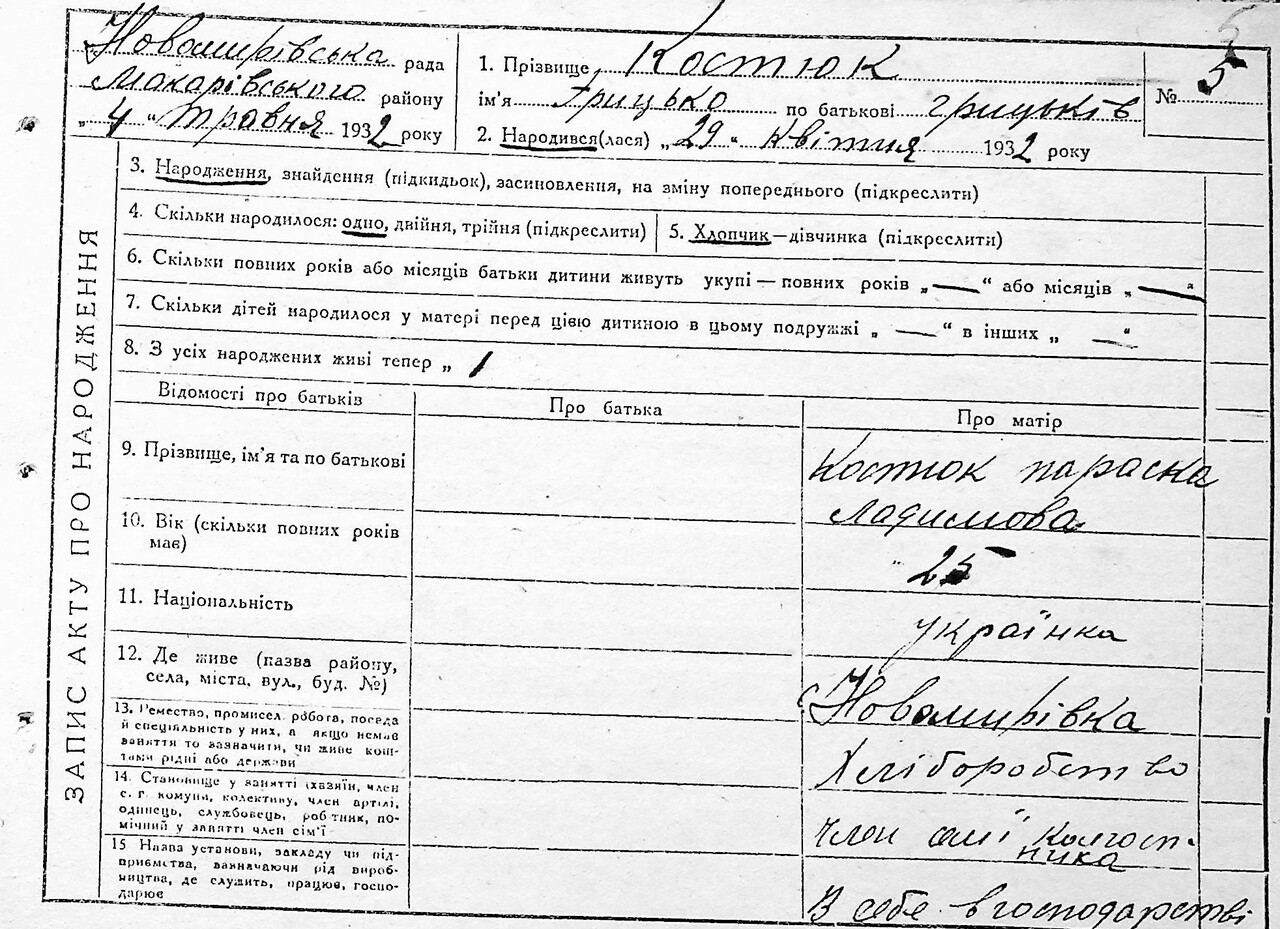 Новомирівська рада
Макарівського району
„4“ Травня 1932 року
1. Прізвище Костюк
ім'я Грицько по батькові грицьків
2. Народився(лася) „29“ Квітня 1932 року
№ 5
ЗАПИС АКТУ ПРО НАРОДЖЕННЯ
3. Народження, знайдення (підкидьок), засиновлення, на зміну попереднього (підкреслити)
4. Скільки народилося: одно, двійня, трійня (підкреслити)
5. Хлопчик—дівчинка (підкреслити)
6. Скільки повних років або місяців батьки дитини живуть укупі — повних років „—“ або місяців „—“
7. Скільки дітей народилося у матері перед цією дитиною в цьому подружжі „—“ в інших „—“
8. З усіх народжених живі тепер „ 1
Відомості про батьків
Про батька
Про матір
9. Прізвище, ім'я та по батькові
Костюк параска
Ладимова
10. Вік (скільки повних років
має)
25
11. Національність
українка
12. Де живе (назва району,
села, міста, вул., буд. №)
с Новомирівка
13. Ремество, промисел, робота, посада
й спеціальність у них, а якщо немає
заняття то зазначити, чи живе кош-
тами рідні або держави
Хліборобство
14. Становище у занятті (хазяїн, член
с. г. комуни, колективу, член артілі,
одинець, службовець, робітник, по-
мічний у занятті член сім'ї
член сімї колгосп-
ника
15 Назва установи, закладу чи під-
приємства, зазначаючи рід вироб-
ництва, де служить, працює, госпо-
дарює
В себе в господарстві